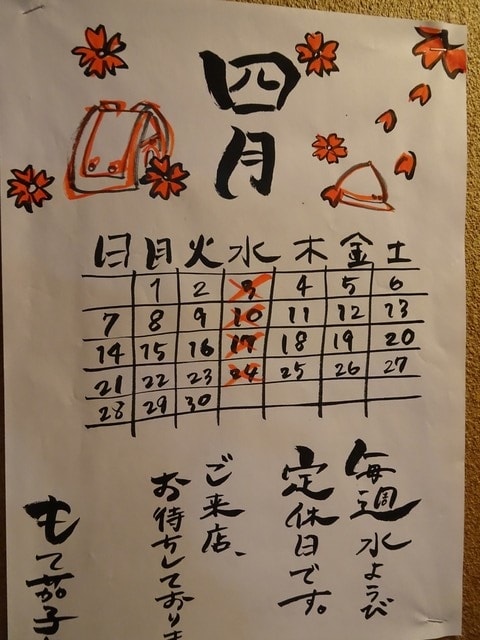 四月
日 月 火 水 木 金 土
1 2 3 4 5 6
7 8 9 10 11 12 13
14 15 16 17 18 19 20
21 22 23 24 25 26 27
28 29 30
毎週水ようび
定休日です。
ご来店、
お待ちしております
もて茄子